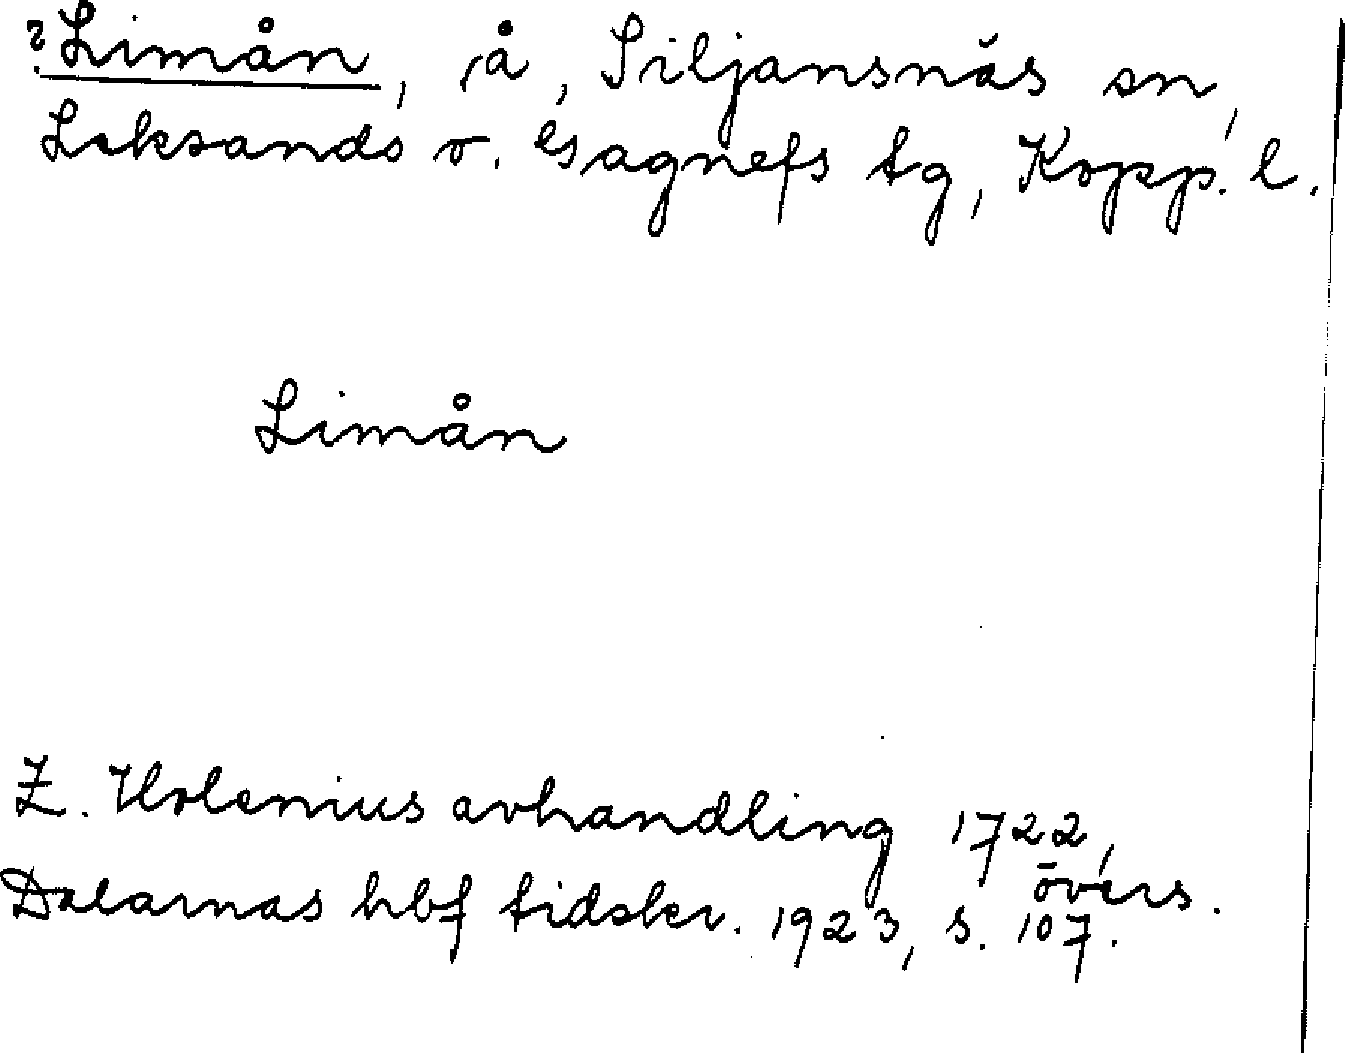 ? Limån, å, Siljansnäs sn,
Leksands o. Gagnefs tg, Kopp. l.
Limån
Z. Holenius avhandling 1722,
övers.
Dalarnas hbf tidskr. 1923, s. 107.